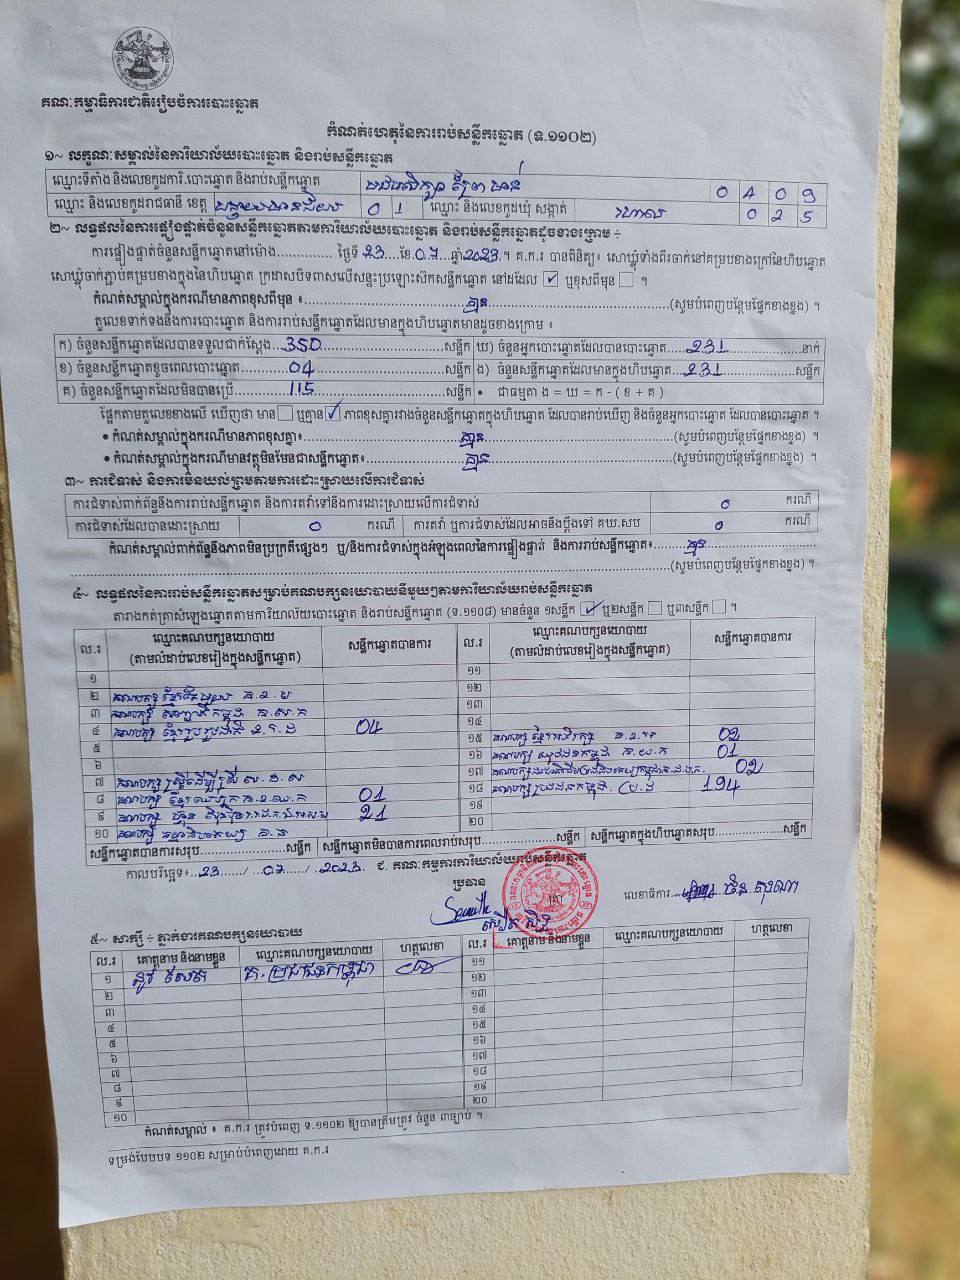 គណៈកម្មាធិការជាតិរៀបចំការបោះឆ្នោត
កំណត់ហេតុនៃការរាប់សន្លឹកឆ្នោត (ទ.១១០២)
១~ លក្ខណៈសម្គាល់នៃការិយាល័យបោះឆ្នោត និងរាប់សន្លឹកឆ្នោត
ឈ្មោះទីតាំង និងលេខកូដការិ.បោះឆ្នោត និងរាប់សន្លឹកឆ្នោត 0 4 0 9
ឈ្មោះ និងលេខកូដរាជធានី ខេត្ត បន្ទាយមានជ័យ 0 1 ឈ្មោះ និងលេខកូដឃុំ សង្កាត់ 0 2 5
២~ លទ្ធផលនៃការផ្ទៀងផ្ទាត់ចំនួនសន្លឹកឆ្នោតតាមការិយាល័យបោះឆ្នោត និងរាប់សន្លឹកឆ្នោតដូចខាងក្រោម ÷
ការផ្ទៀងផ្ទាត់ចំនួនសន្លឹកឆ្នោតនៅម៉ោង.............. ថ្ងៃទី 23 ...ខែ.07...ឆ្នាំ 2023.។ គ.ក.រ បានពិនិត្យ៖ សោឃ្លុំទាំងពីរចាក់នៅគម្របខាងក្រៅនៃហិបឆ្នោត
សោឃ្លុំចាក់ភ្ជាប់គម្របខាងក្នុងនៃហិបឆ្នោត ក្រដាសបិទពាសលើសន្ទះប្រឡោះស៊កសន្លឹកឆ្នោត នៅដដែល ✓ ឬខុសពីមុន ។
កំណត់សម្គាល់ក្នុងករណីមានភាពខុសពីមុន ៖ គ្មាន (សូមបំពេញបន្ថែមផ្នែកខាងខ្នង) ។
តួលេខទាក់ទងនឹងការបោះឆ្នោត និងការរាប់សន្លឹកឆ្នោតដែលមានក្នុងហិបឆ្នោតមានដូចខាងក្រោម ៖
ក) ចំនួនសន្លឹកឆ្នោតដែលបានទទួលជាក់ស្តែង 350 សន្លឹក ឃ) ចំនួនអ្នកបោះឆ្នោតដែលបានបោះឆ្នោត 231 នាក់
ខ) ចំនួនសន្លឹកឆ្នោតខូចពេលបោះឆ្នោត 04 សន្លឹក ង) ចំនួនសន្លឹកឆ្នោតដែលមានក្នុងហិបឆ្នោត 231 សន្លឹក
គ) ចំនួនសន្លឹកឆ្នោតដែលមិនបានប្រើ 115 សន្លឹក • ជាធម្មតា ង = ឃ = ក - ( ខ + គ )
ផ្អែកតាមតួលេខខាងលើ ឃើញថា មាន ឬគ្មាន ✓ ភាពខុសគ្នារវាងចំនួនសន្លឹកឆ្នោតក្នុងហិបឆ្នោត ដែលបានរាប់ឃើញ និងចំនួនអ្នកបោះឆ្នោត ដែលបានបោះឆ្នោត ។
• កំណត់សម្គាល់ក្នុងករណីមានភាពខុសគ្នា៖ គ្មាន (សូមបំពេញបន្ថែមផ្នែកខាងខ្នង) ។
• កំណត់សម្គាល់ក្នុងករណីមានវត្ថុមិនមែនជាសន្លឹកឆ្នោត៖ គ្មាន (សូមបំពេញបន្ថែមផ្នែកខាងខ្នង) ។
៣~ ការជំទាស់ និងការមិនយល់ព្រមតាមការដោះស្រាយលើការជំទាស់
ការជំទាស់ពាក់ព័ន្ធនឹងការរាប់សន្លឹកឆ្នោត និងការតវ៉ាទៅនឹងការដោះស្រាយលើការជំទាស់ 0 ករណី
ការជំទាស់ដែលបានដោះស្រាយ 0 ករណី ការតវ៉ា ឬការជំទាស់ដែលអាចនឹងប្តឹងទៅ គឃ.សប 0 ករណី
កំណត់សម្គាល់ពាក់ព័ន្ធនឹងភាពមិនប្រក្រតីផ្សេងៗ ឬ/និងការជំទាស់ក្នុងអំឡុងពេលនៃការផ្ទៀងផ្ទាត់ និងការរាប់សន្លឹកឆ្នោត៖ គ្មាន
(សូមបំពេញបន្ថែមផ្នែកខាងខ្នង) ។
៤~ លទ្ធផលនៃការរាប់សន្លឹកឆ្នោតសម្រាប់គណបក្សនយោបាយនីមួយៗតាមការិយាល័យរាប់សន្លឹកឆ្នោត
តារាងកត់ត្រាសំឡេងឆ្នោតតាមការិយាល័យបោះឆ្នោត និងរាប់សន្លឹកឆ្នោត (ទ.១១០៨) មានចំនួន ១សន្លឹក ✓ ឬ២សន្លឹក ឬ៣សន្លឹក ។
ល.រ ឈ្មោះគណបក្សនយោបាយ (តាមលំដាប់លេខរៀងក្នុងសន្លឹកឆ្នោត) សន្លឹកឆ្នោតបានការ ល.រ ឈ្មោះគណបក្សនយោបាយ (តាមលំដាប់លេខរៀងក្នុងសន្លឹកឆ្នោត) សន្លឹកឆ្នោតបានការ
១ ១១
២ គណបក្ស ១២
៣ គណបក្ស ១៣
៤ គណបក្ស ខ្មែររួបរួមជាតិ 04 ១៤
៥ ១៥ គណបក្ស ខ្មែរអភិរក្ស 02
៦ ១៦ គណបក្ស យុវជនកម្ពុជា 01
៧ គណបក្ស ស្ត្រីដើម្បីស្ត្រី ១៧ 02
៨ គណបក្ស 01 ១៨ គណបក្ស ប្រជាជនកម្ពុជា 194
៩ គណបក្ស ហ្វ៊ុនស៊ិនប៉ិច 21 ១៩
១០ គណបក្ស ធម្មាធិបតេយ្យ 20
សន្លឹកឆ្នោតបានការសរុប សន្លឹក សន្លឹកឆ្នោតមិនបានការពេលរាប់សរុប សន្លឹក សន្លឹកឆ្នោតក្នុងហិបឆ្នោតសរុប សន្លឹក
កាលបរិច្ឆេទ៖ 23 / 07 / 2023 ជ. គណៈកម្មការការិយាល័យរាប់សន្លឹកឆ្នោត
ប្រធាន
លេខាធិការ
៥~ សាក្សី ÷ ភ្នាក់ងារគណបក្សនយោបាយ
ល.រ គោត្តនាម និងនាមខ្លួន ឈ្មោះគណបក្សនយោបាយ ហត្ថលេខា ល.រ គោត្តនាម និងនាមខ្លួន ឈ្មោះគណបក្សនយោបាយ ហត្ថលេខា
១ គ. ប្រជាជនកម្ពុជា ១១
២ ១២
៣ ១៣
៤ ១៤
៥ ១៥
៦ ១៦
៧ ១៧
៨ ១៨
៩ ១៩
១០ 20
កំណត់សម្គាល់ ៖ គ.ក.រ ត្រូវបំពេញ ទ.១១០២ ឱ្យបានត្រឹមត្រូវ ចំនួន ៣ច្បាប់ ។
ទម្រង់បែបបទ ១១០២ សម្រាប់បំពេញដោយ គ.ក.រ